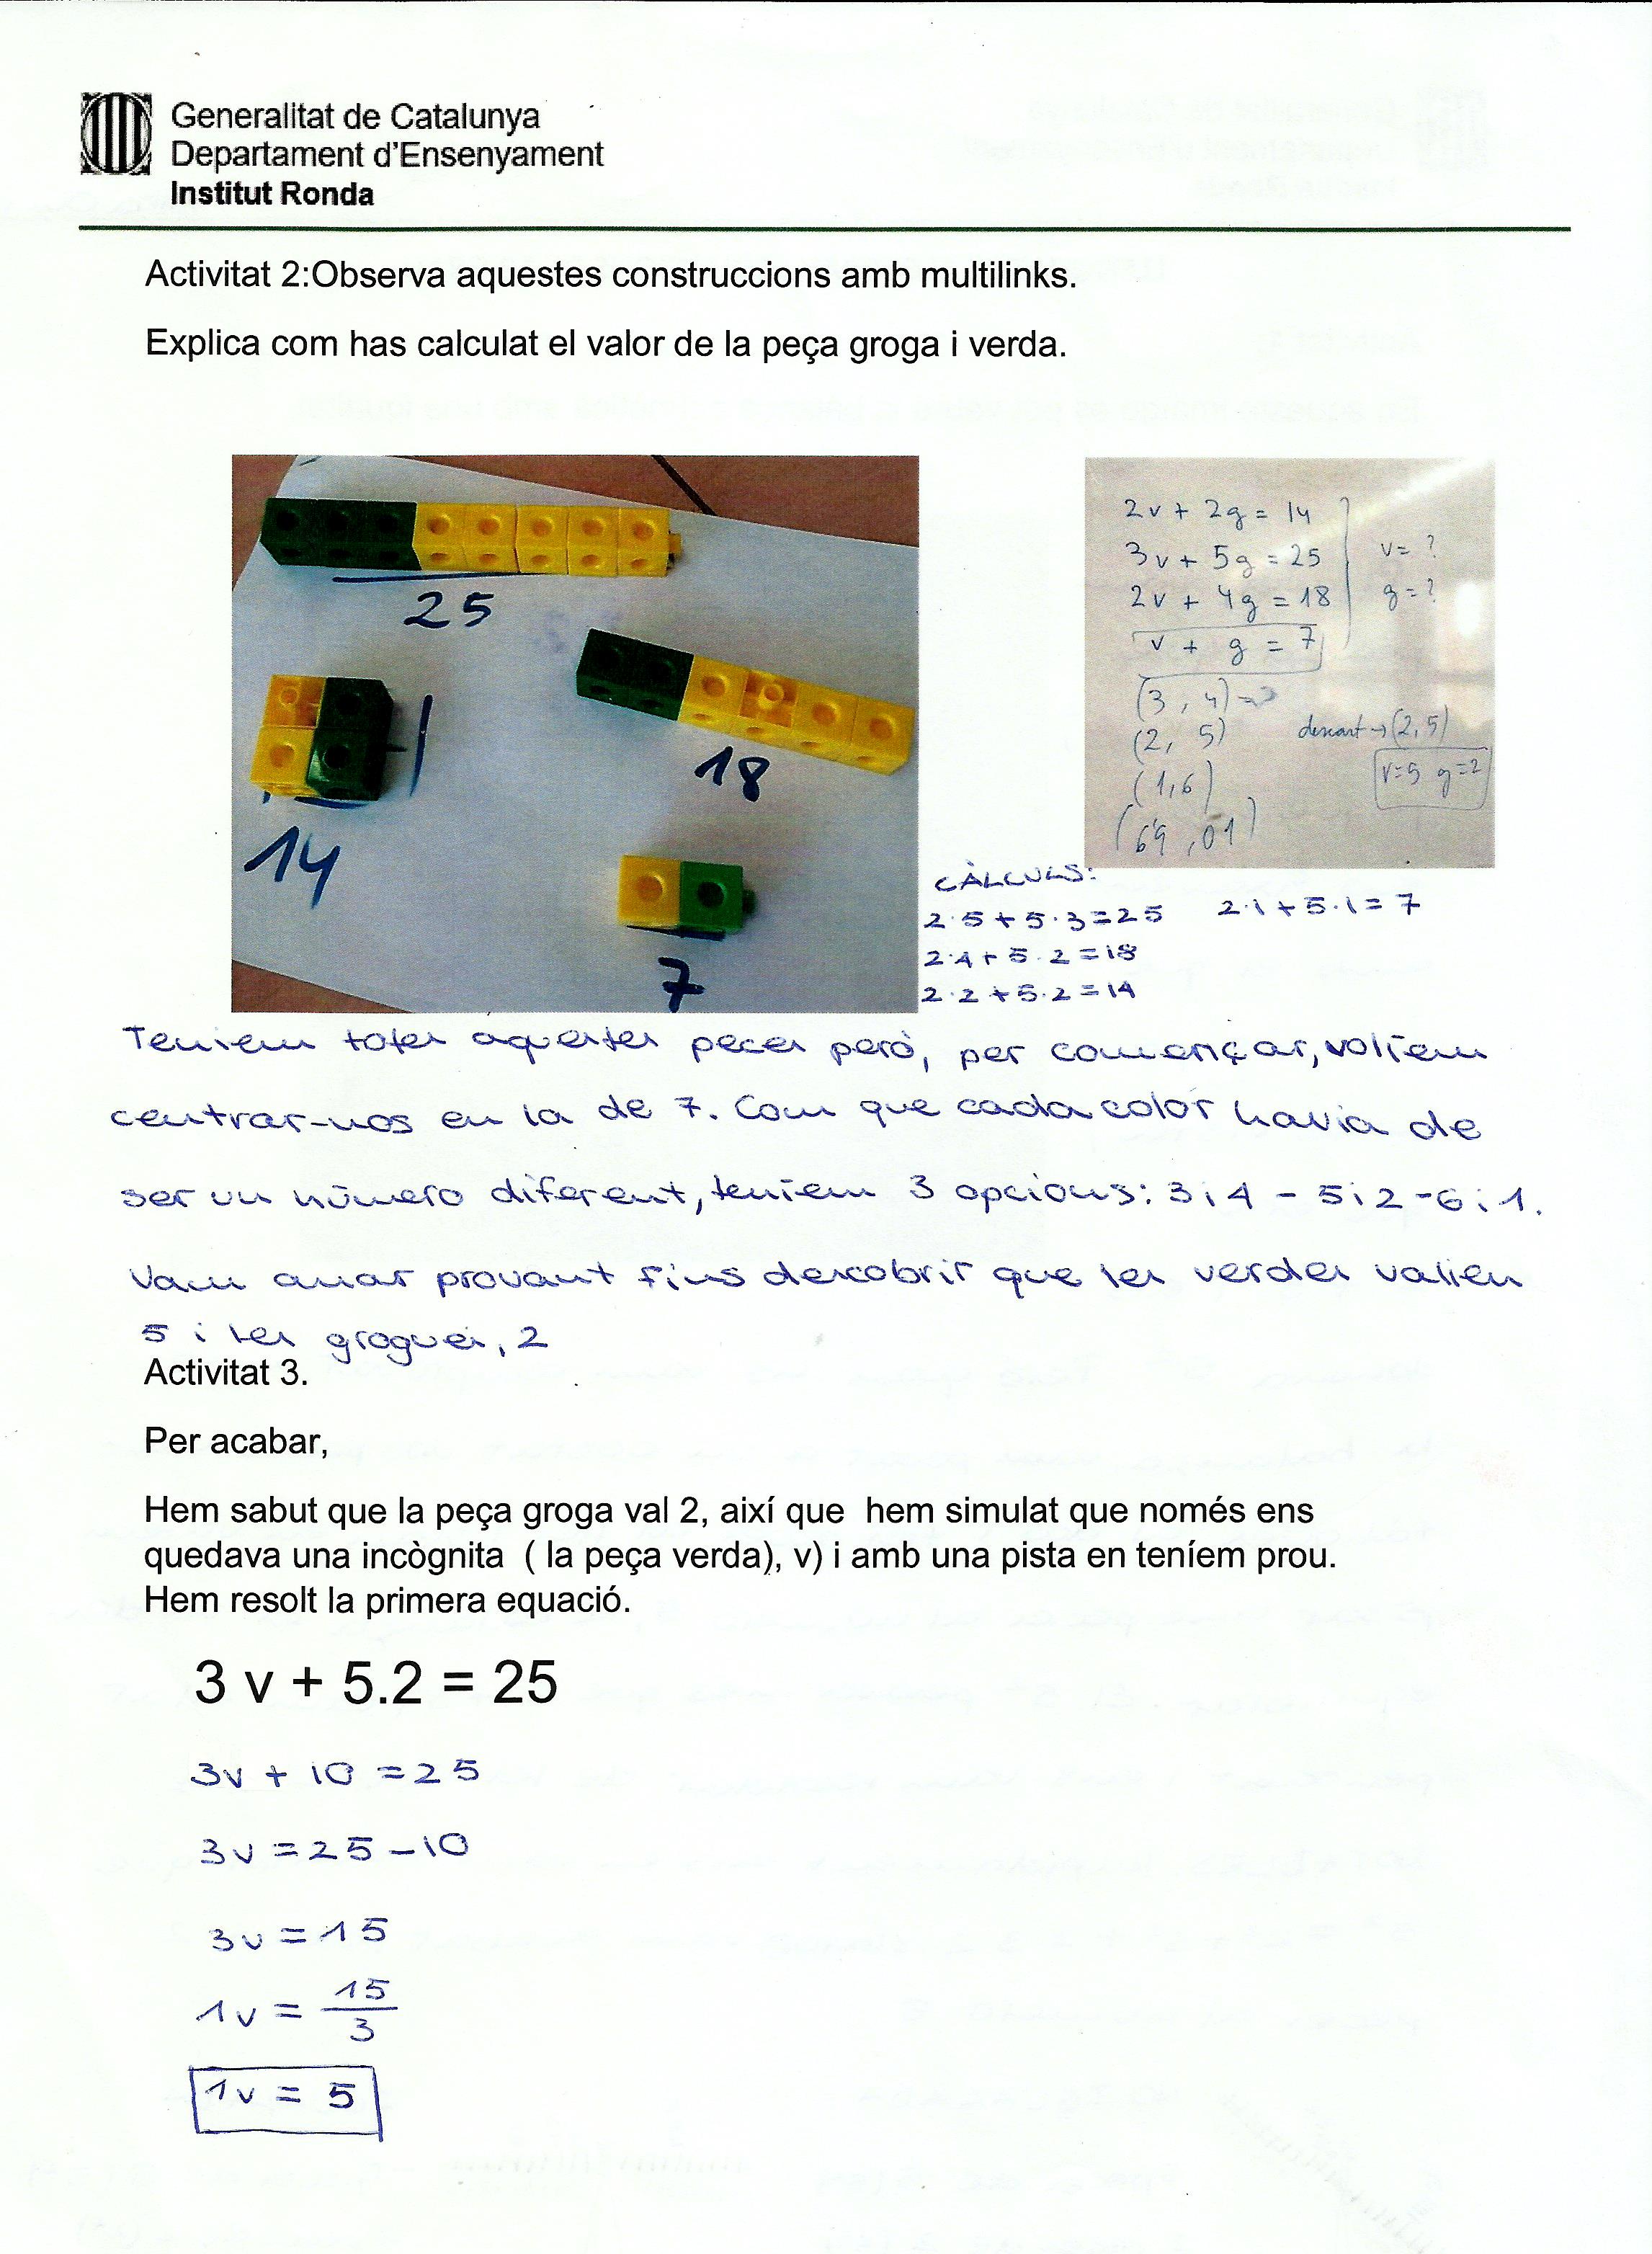 Generalitat de Catalunya
Departament d'Ensenyament
Institut Ronda
Activitat 2:Observa aquestes construccions amb multilinks.
Explica com has calculat el valor de la peça groga i verda.
25
18
14
7
2v + 2g = 14
3v + 5g = 25
2v + 4g = 18
v + g = 7
v= ?
g=?
(3, 4) =>
(2, 5)
(1,6)
(6'9, 0'1)
descart → (2,5)
v=5 g=2
CÀLCULS:
2·5+5·3=25
2·4+5·2=18
2·2+5·2=14
2·1+5·1=7
Teniem totes aquestes peces però, per començar, voliem
centrar-nos en la de 7. Com que cada color havia de
ser un número diferent, teniem 3 opcions: 3i4 - 5i2 - 6i1.
Vam anar provant fins descobrir que les verdes valien
5 i les grogues, 2
Activitat 3.
Per acabar,
Hem sabut que la peça groga val 2, així que hem simulat que només ens
quedava una incògnita ( la peça verda), v) i amb una pista en teníem prou.
Hem resolt la primera equació.
3 v + 5.2 = 25
3v + 10 = 25
3v = 25 - 10
3v = 15
1v = 15/3
1v = 5